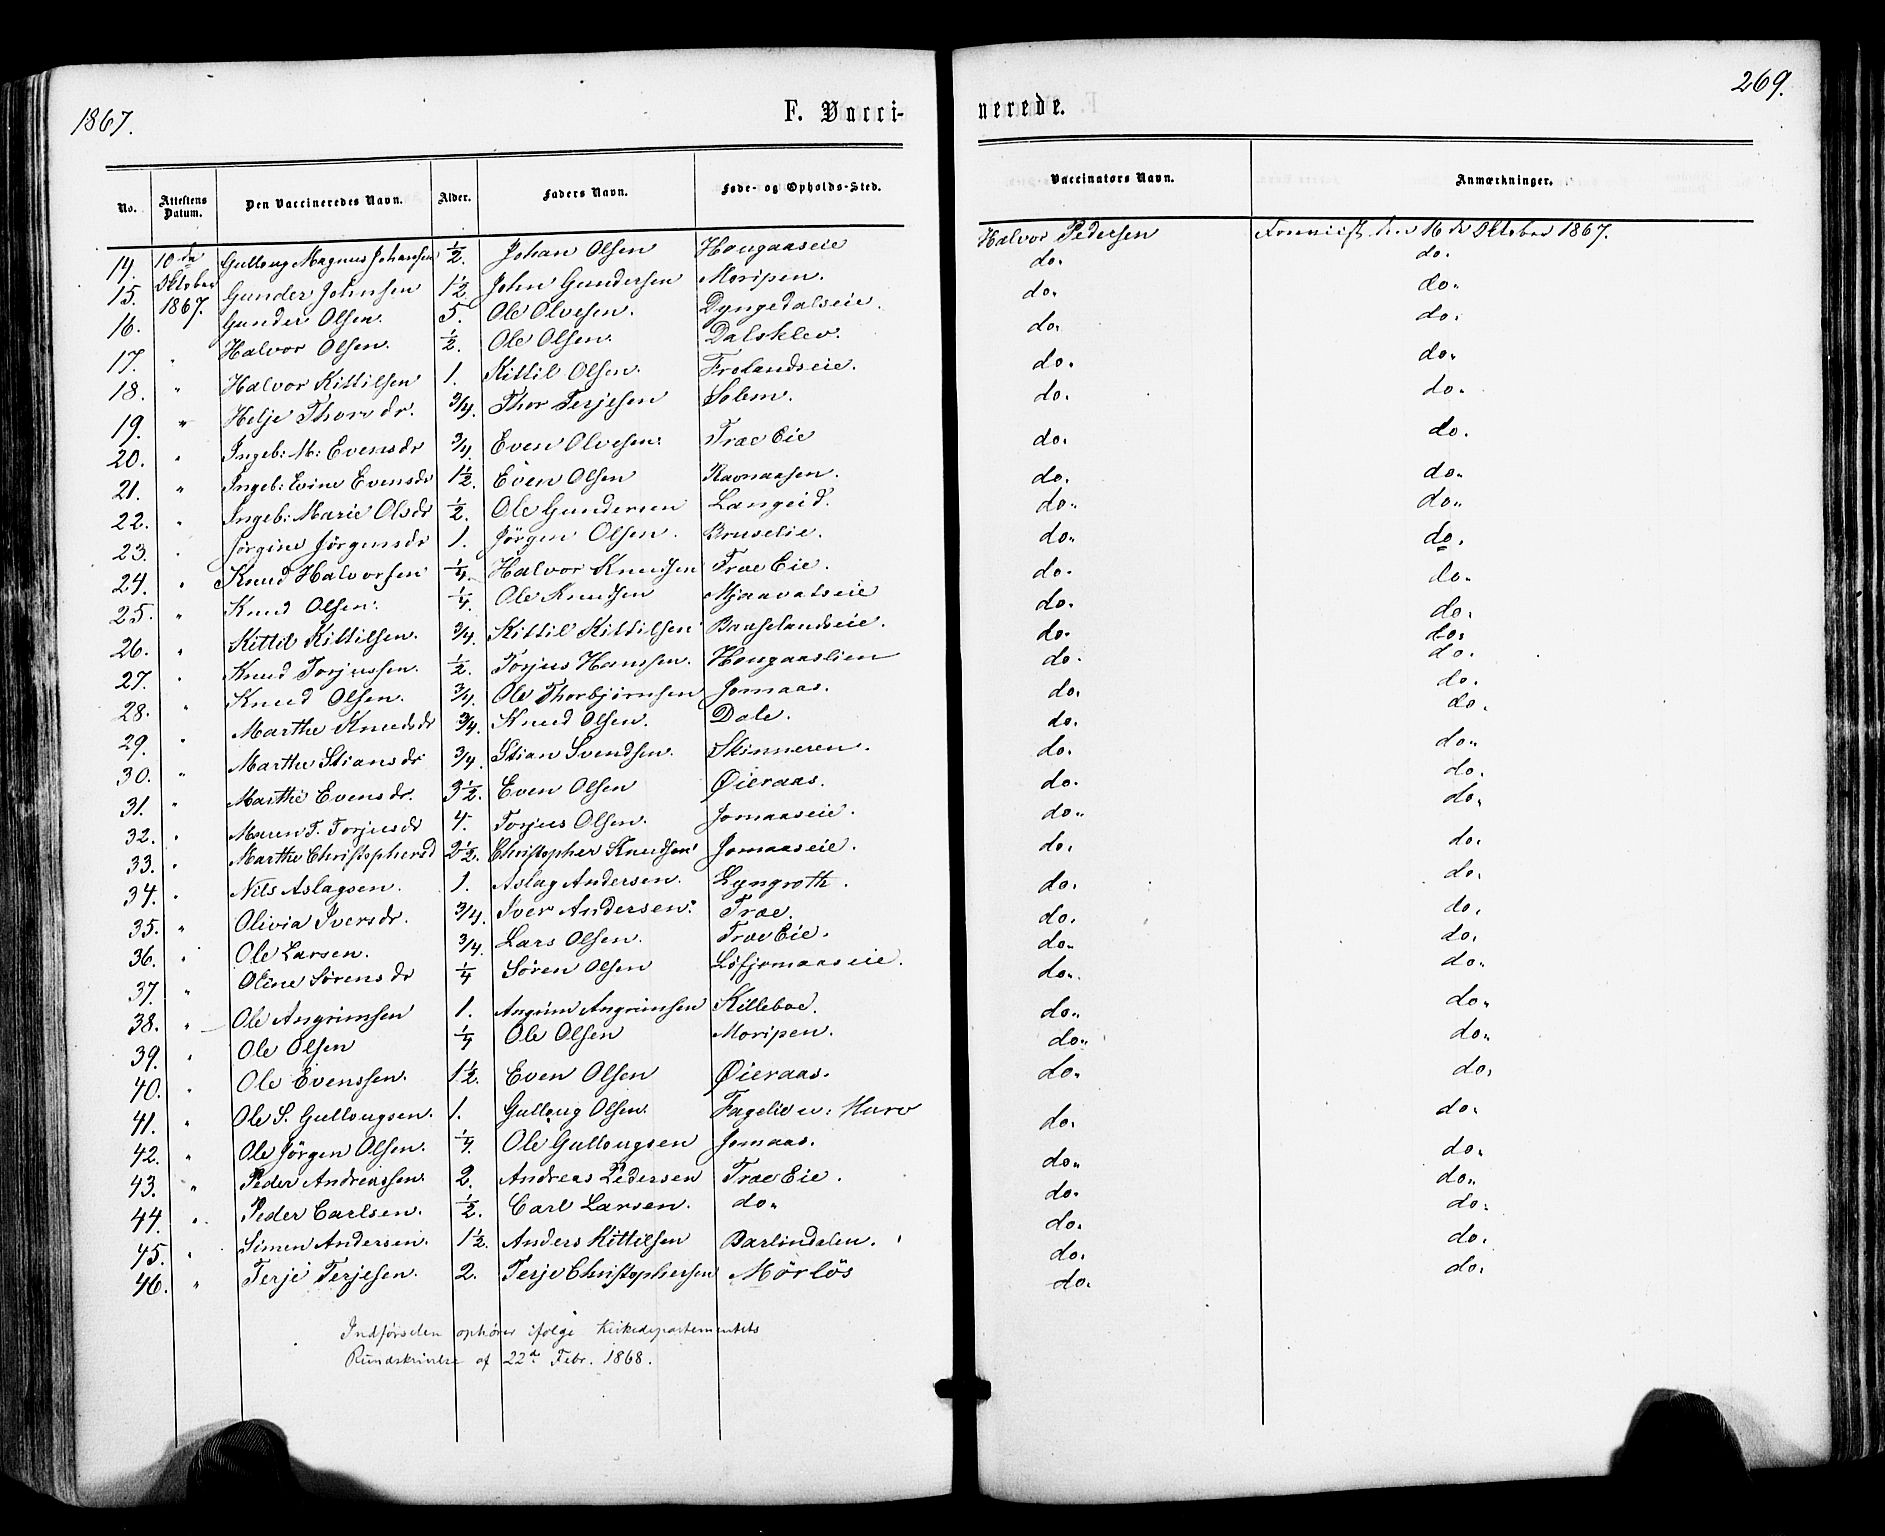 1867.
F. Vacci-
nerede.
269.
No. Attestens Datum. Den Vaccineredes Navn. Alder. Faders Navn. Føde- og Opholds-Sted. Vaccinators Navn. Anmærkninger.
14. 10de Oktober 1867. Gulloug Magnus Johansen ½. Johan Olsen Hougaaseie Halvor Pedersen Foreviist den 16de Oktober 1867.
15. Gunder Johnsen 1½ John Gundersen Moripen. do. do.
16. Gunder Olsen. 5. Ole Olvesen. Dyngedalseie. do. do.
17. " Halvor Olsen. ½. Ole Olsen. Dalsklev. do. do.
18. " Halvor Kittilsen 1. Kittil Olsen. Frolandseie. do. do.
19. " Helje Thorsdr. 3/4. Thor Terjesen Solem. do. do.
20. " Ingeb: M: Evensdr 3/4. Even Olvesen. Træ Eie do. do.
21. " Ingeb: Evine Evensdr 1½. Even Olsen Ravnaasen. do. do.
22. " Ingeb: Marie Olsdr ½. Ole Gundersen Langeid. do. do.
23. " Jørgine Jørgensdr 1. Jørgen Olsen. Bruselie. do. do.
24. " Knud Halvorsen ¼. Halvor Knudsen Træ Eie. do. do.
25. " Knud Olsen. ¼. Ole Knudsen Mjaavatseie do. do.
26. " Kittil Kittilsen. 3/4. Kittil Kittilsen Bouselandseie. do. do.
27. " Knud Torjussen. ½. Torjus Hanssen. Hougaaslien do. do.
28. " Knud Olsen. 3/4. Ole Thorbjørnsen Jomaas. do. do.
29. " Marthe Knudsdr 3/4. Knud Olsen. Dale. do. do.
30. " Marthe Stiansdr 3/4. Stian Svendsen. Skinneren. do. do.
31. " Marthe Evensdr. 3½. Even Olsen Øieraas. do. do.
32. " Maren T. Torjusdr 4. Torjus Olsen. Jomaaseie. do. do.
33. " Marthe Christophersd 2½. Christopher Knudsen Jomaaseie. do. do.
34. " Nils Aslagsen. 1. Aslag Andersen. Lyngroth. do. do.
35. " Olivia Iversdr. 3/4. Iver Andersen. Træ. do. do.
36. " Ole Larsen. 3/4. Lars Olsen. Træ Eie. do. do.
37. " Oline Sørensdr ¼ Søren Olsen Løfjomaaseie. do. do.
38. " Ole Angrimsen 1. Angrim Angrimsen Killeboe. do. do.
39. " Ole Olsen ¼ Ole Olsen Moripen. do. do.
40. " Ole Evenssen. 1½. Even Olsen Øieraas. do. do.
41. " Ole S. Gullougsen. 1. Gulloug Olsen. Fagelie u: do. do.
42. " Ole Jørgen Olsen. ¼. Ole Gullougsen Jomaas. do. do.
43. " Peder Andreassen 2. Andreas Pedersen Træ Eie. do. do.
44. " Peder Carlsen. ½. Carl Larsen. do. do. do.
45. " Simen Andersen. 1½. Anders Kittilsen Barlindalen. do. do.
46. " Terje Terjesen. 2. Terje Christophersen Mörlös do. do.
Indførselen ophører ifølge Kirkedepartementets
Rundskrivelse af 22de Febr. 1868.